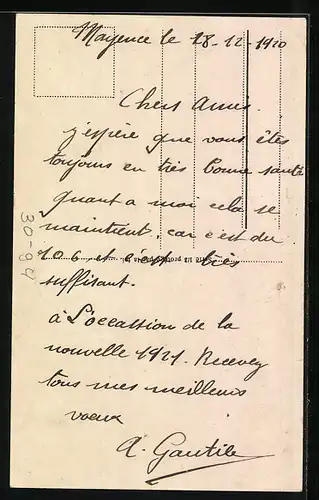 Mayence le 18-12-1920
Chers Amis.
j'espère que vous êtes
toujours en très bonne santé
quant a moi cela se
maintient, car c'est du
106 et c'est très
suffisant.
à L'occassion de la
nouvelle 1921. Recevez
tous mes meilleurs
voeux
A. Gautile
30-94